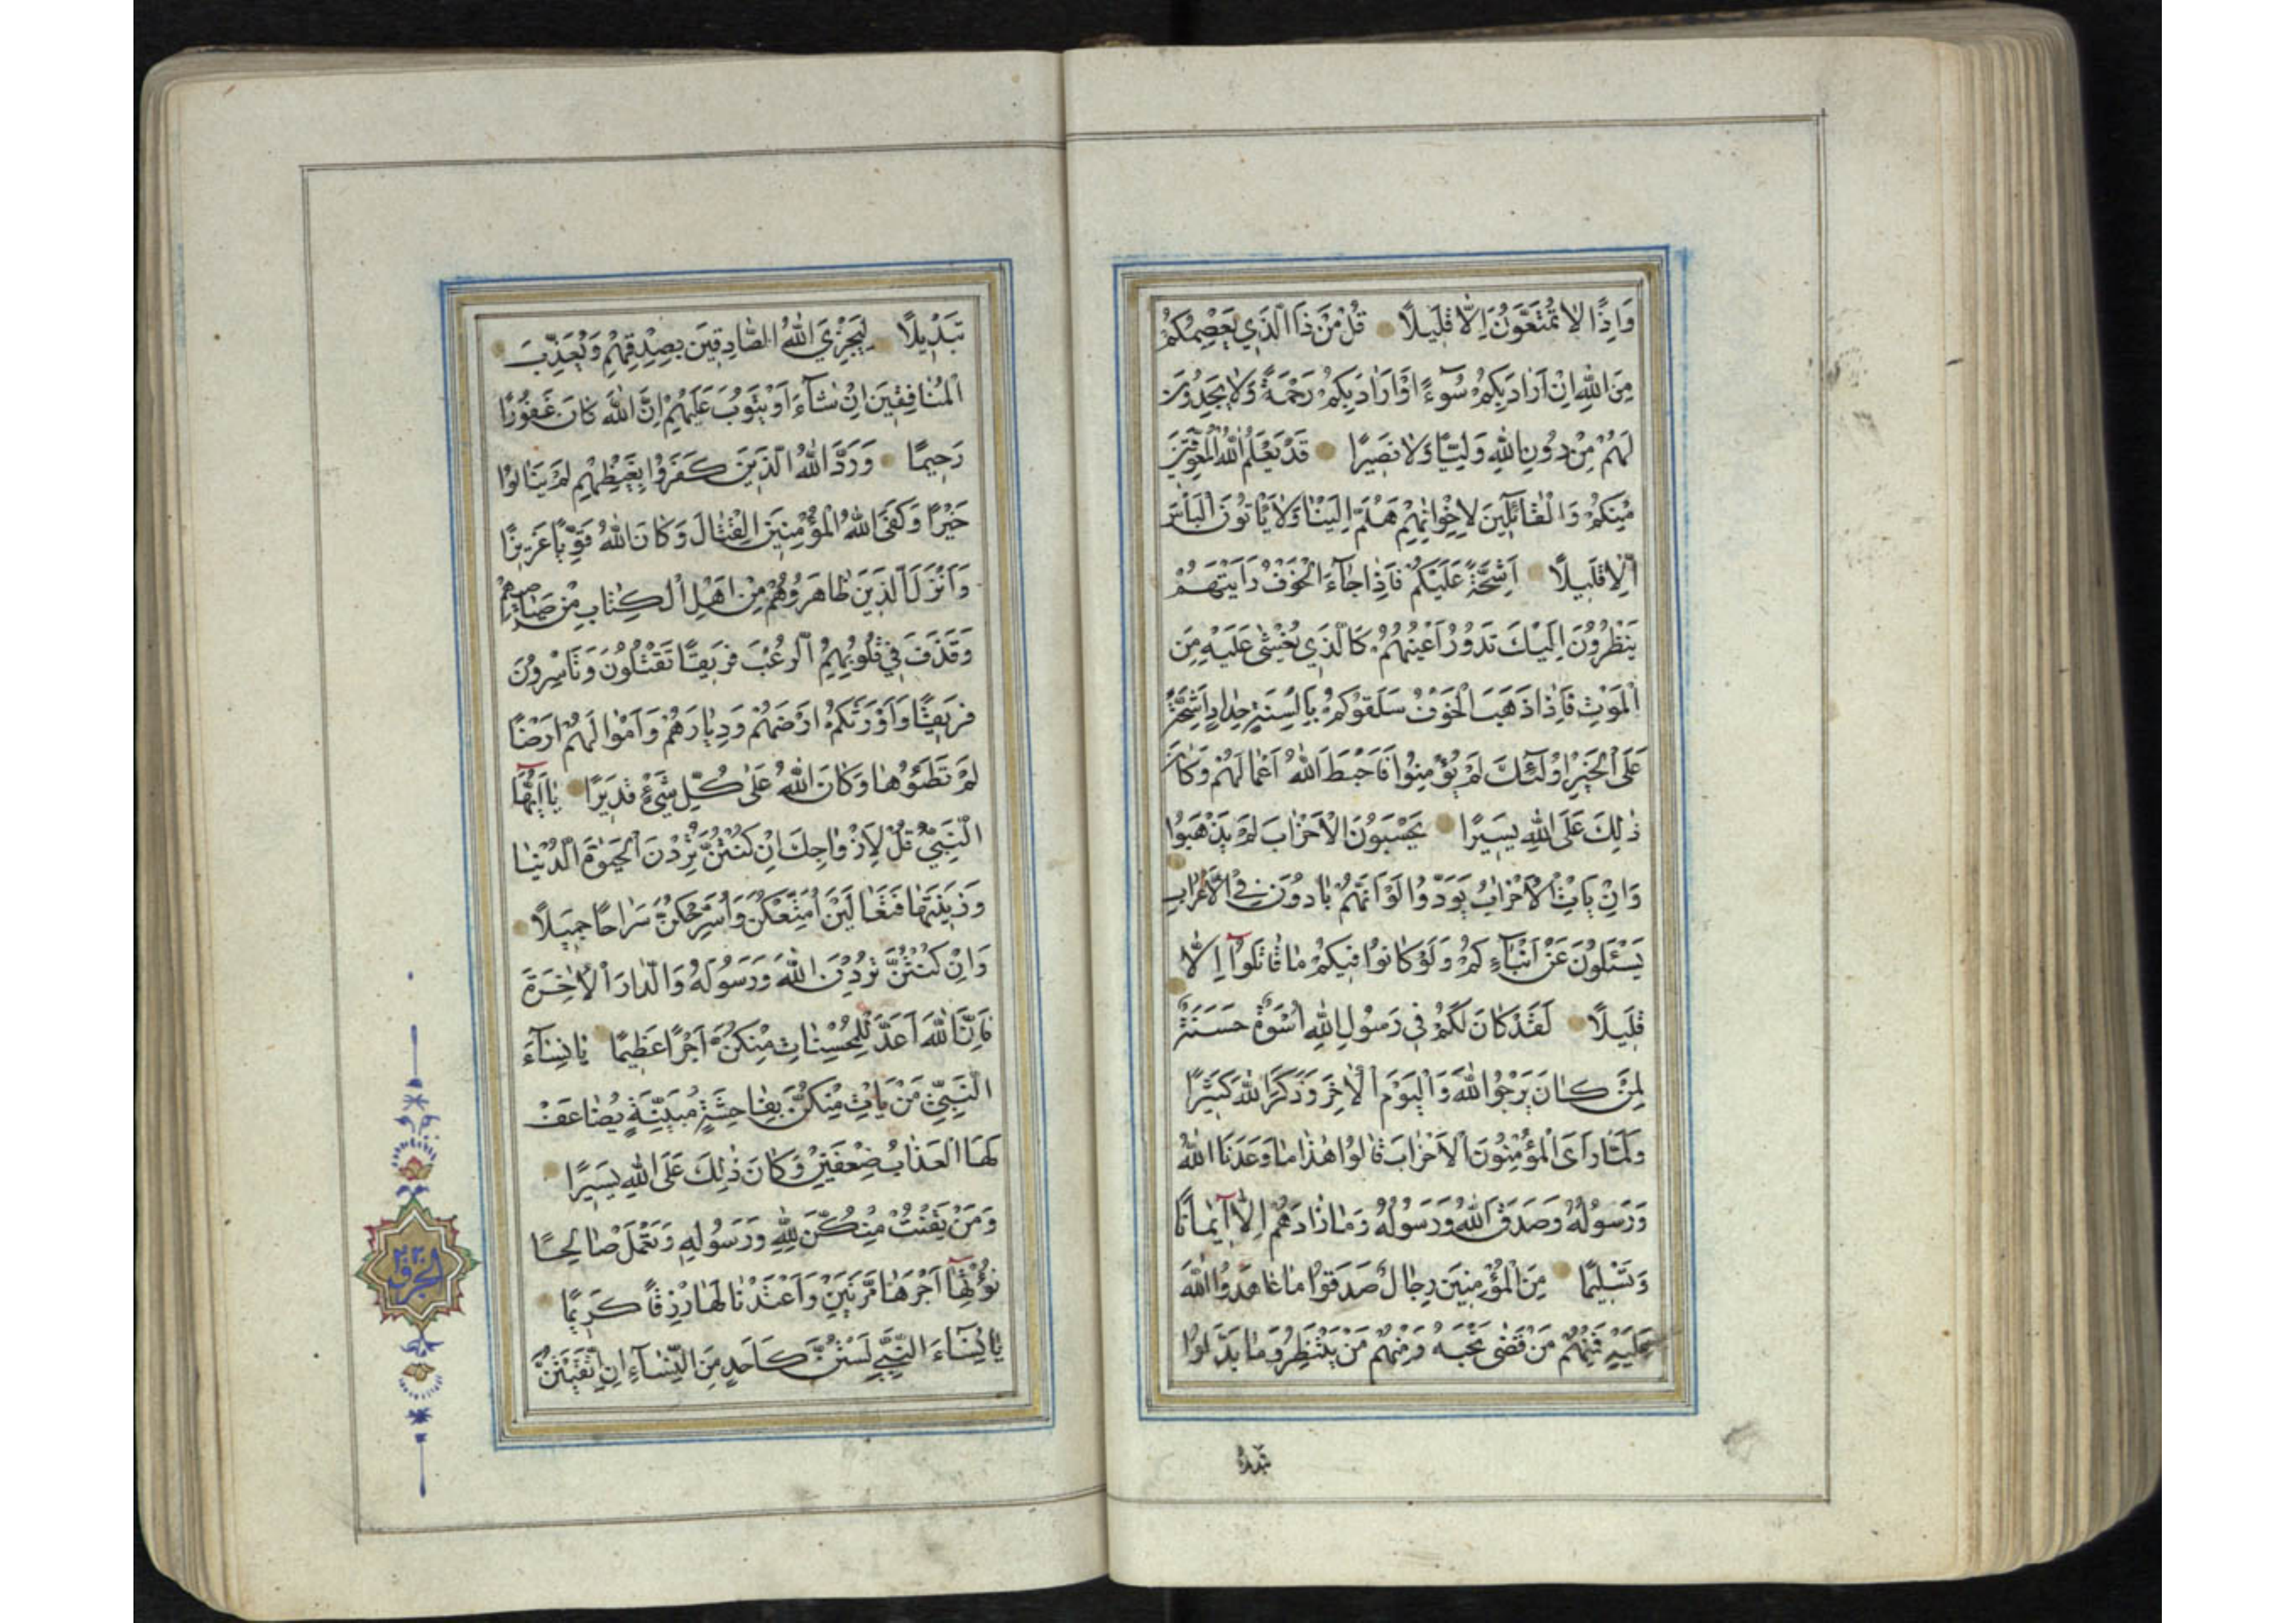 وَاِذًا لَا تُمَتَّعُونَ اِلَّا قَلِيلًا قُلْ مَنْ ذَا الَّذِي يَعْصِمُكُمْ
مِنَ اللّٰهِ اِنْ اَرَادَ بِكُمْ سُوٓءًا اَوْ اَرَادَ بِكُمْ رَحْمَةً وَلَا يَجِدُونَ
لَهُمْ مِنْ دُونِ اللّٰهِ وَلِيًّا وَلَا نَصِيرًا قَدْ يَعْلَمُ اللّٰهُ الْمُعَوِّقِينَ
مِنْكُمْ وَالْقَآئِلِينَ لِاِخْوَانِهِمْ هَلُمَّ اِلَيْنَا وَلَا يَأْتُونَ الْبَأْسَ
اِلَّا قَلِيلًا اَشِحَّةً عَلَيْكُمْ فَاِذَا جَآءَ الْخَوْفُ رَاَيْتَهُمْ
يَنْظُرُونَ اِلَيْكَ تَدُورُ اَعْيُنُهُمْ كَالَّذِي يُغْشٰى عَلَيْهِ مِنَ
الْمَوْتِ فَاِذَا ذَهَبَ الْخَوْفُ سَلَقُوكُمْ بِاَلْسِنَةٍ حِدَادٍ اَشِحَّةً
عَلَى الْخَيْرِ اُولٰٓئِكَ لَمْ يُؤْمِنُوا فَاَحْبَطَ اللّٰهُ اَعْمَالَهُمْ وَكَانَ
ذٰلِكَ عَلَى اللّٰهِ يَسِيرًا يَحْسَبُونَ الْاَحْزَابَ لَمْ يَذْهَبُوا
وَاِنْ يَاْتِ الْاَحْزَابُ يَوَدُّوا لَوْ اَنَّهُمْ بَادُونَ فِي الْاَعْرَابِ
يَسْئَلُونَ عَنْ اَنْبَآءِكُمْ وَلَوْ كَانُوا فِيكُمْ مَا قَاتَلُوٓا اِلَّا
قَلِيلًا لَقَدْ كَانَ لَكُمْ فِي رَسُولِ اللّٰهِ اُسْوَةٌ حَسَنَةٌ
لِمَنْ كَانَ يَرْجُوا اللّٰهَ وَالْيَوْمَ الْاٰخِرَ وَذَكَرَ اللّٰهَ كَثِيرًا
وَلَمَّا رَاَى الْمُؤْمِنُونَ الْاَحْزَابَ قَالُوا هٰذَا مَا وَعَدَنَا اللّٰهُ
وَرَسُولُهُ وَصَدَقَ اللّٰهُ وَرَسُولُهُ وَمَا زَادَهُمْ اِلَّٓا اِيمَانًا
وَتَسْلِيمًا مِنَ الْمُؤْمِنِينَ رِجَالٌ صَدَقُوا مَا عَاهَدُوا اللّٰهَ
عَلَيْهِ فَمِنْهُمْ مَنْ قَضٰى نَحْبَهُ وَمِنْهُمْ مَنْ يَنْتَظِرُ وَمَا بَدَّلُوا
تَبْدِيلًا لِيَجْزِيَ اللّٰهُ الصَّادِقِينَ بِصِدْقِهِمْ وَيُعَذِّبَ
الْمُنَافِقِينَ اِنْ شَآءَ اَوْ يَتُوبَ عَلَيْهِمْ اِنَّ اللّٰهَ كَانَ غَفُورًا
رَحِيمًا وَرَدَّ اللّٰهُ الَّذِينَ كَفَرُوا بِغَيْظِهِمْ لَمْ يَنَالُوا
خَيْرًا وَكَفَى اللّٰهُ الْمُؤْمِنِينَ الْقِتَالَ وَكَانَ اللّٰهُ قَوِيًّا عَزِيزًا
وَاَنْزَلَ الَّذِينَ ظَاهَرُوهُمْ مِنْ اَهْلِ الْكِتَابِ مِنْ صَيَاصِيهِمْ
وَقَذَفَ فِي قُلُوبِهِمُ الرُّعْبَ فَرِيقًا تَقْتُلُونَ وَتَاْسِرُونَ
فَرِيقًا وَاَوْرَثَكُمْ اَرْضَهُمْ وَدِيَارَهُمْ وَاَمْوَالَهُمْ اَرْضًا
لَمْ تَطَئُوهَا وَكَانَ اللّٰهُ عَلٰى كُلِّ شَيْءٍ قَدِيرًا يَآ اَيُّهَا
النَّبِيُّ قُلْ لِاَزْوَاجِكَ اِنْ كُنْتُنَّ تُرِدْنَ الْحَيٰوةَ الدُّنْيَا
وَزِينَتَهَا فَتَعَالَيْنَ اُمَتِّعْكُنَّ وَاُسَرِّحْكُنَّ سَرَاحًا جَمِيلًا
وَاِنْ كُنْتُنَّ تُرِدْنَ اللّٰهَ وَرَسُولَهُ وَالدَّارَ الْاٰخِرَةَ
فَاِنَّ اللّٰهَ اَعَدَّ لِلْمُحْسِنَاتِ مِنْكُنَّ اَجْرًا عَظِيمًا يَا نِسَآءَ
النَّبِيِّ مَنْ يَاْتِ مِنْكُنَّ بِفَاحِشَةٍ مُبَيِّنَةٍ يُضَاعَفْ
لَهَا الْعَذَابُ ضِعْفَيْنِ وَكَانَ ذٰلِكَ عَلَى اللّٰهِ يَسِيرًا
وَمَنْ يَقْنُتْ مِنْكُنَّ لِلّٰهِ وَرَسُولِهِ وَتَعْمَلْ صَالِحًا
نُؤْتِهَآ اَجْرَهَا مَرَّتَيْنِ وَاَعْتَدْنَا لَهَا رِزْقًا كَرِيمًا
يَا نِسَآءَ النَّبِيِّ لَسْتُنَّ كَاَحَدٍ مِنَ النِّسَآءِ اِنِ اتَّقَيْتُنَّ